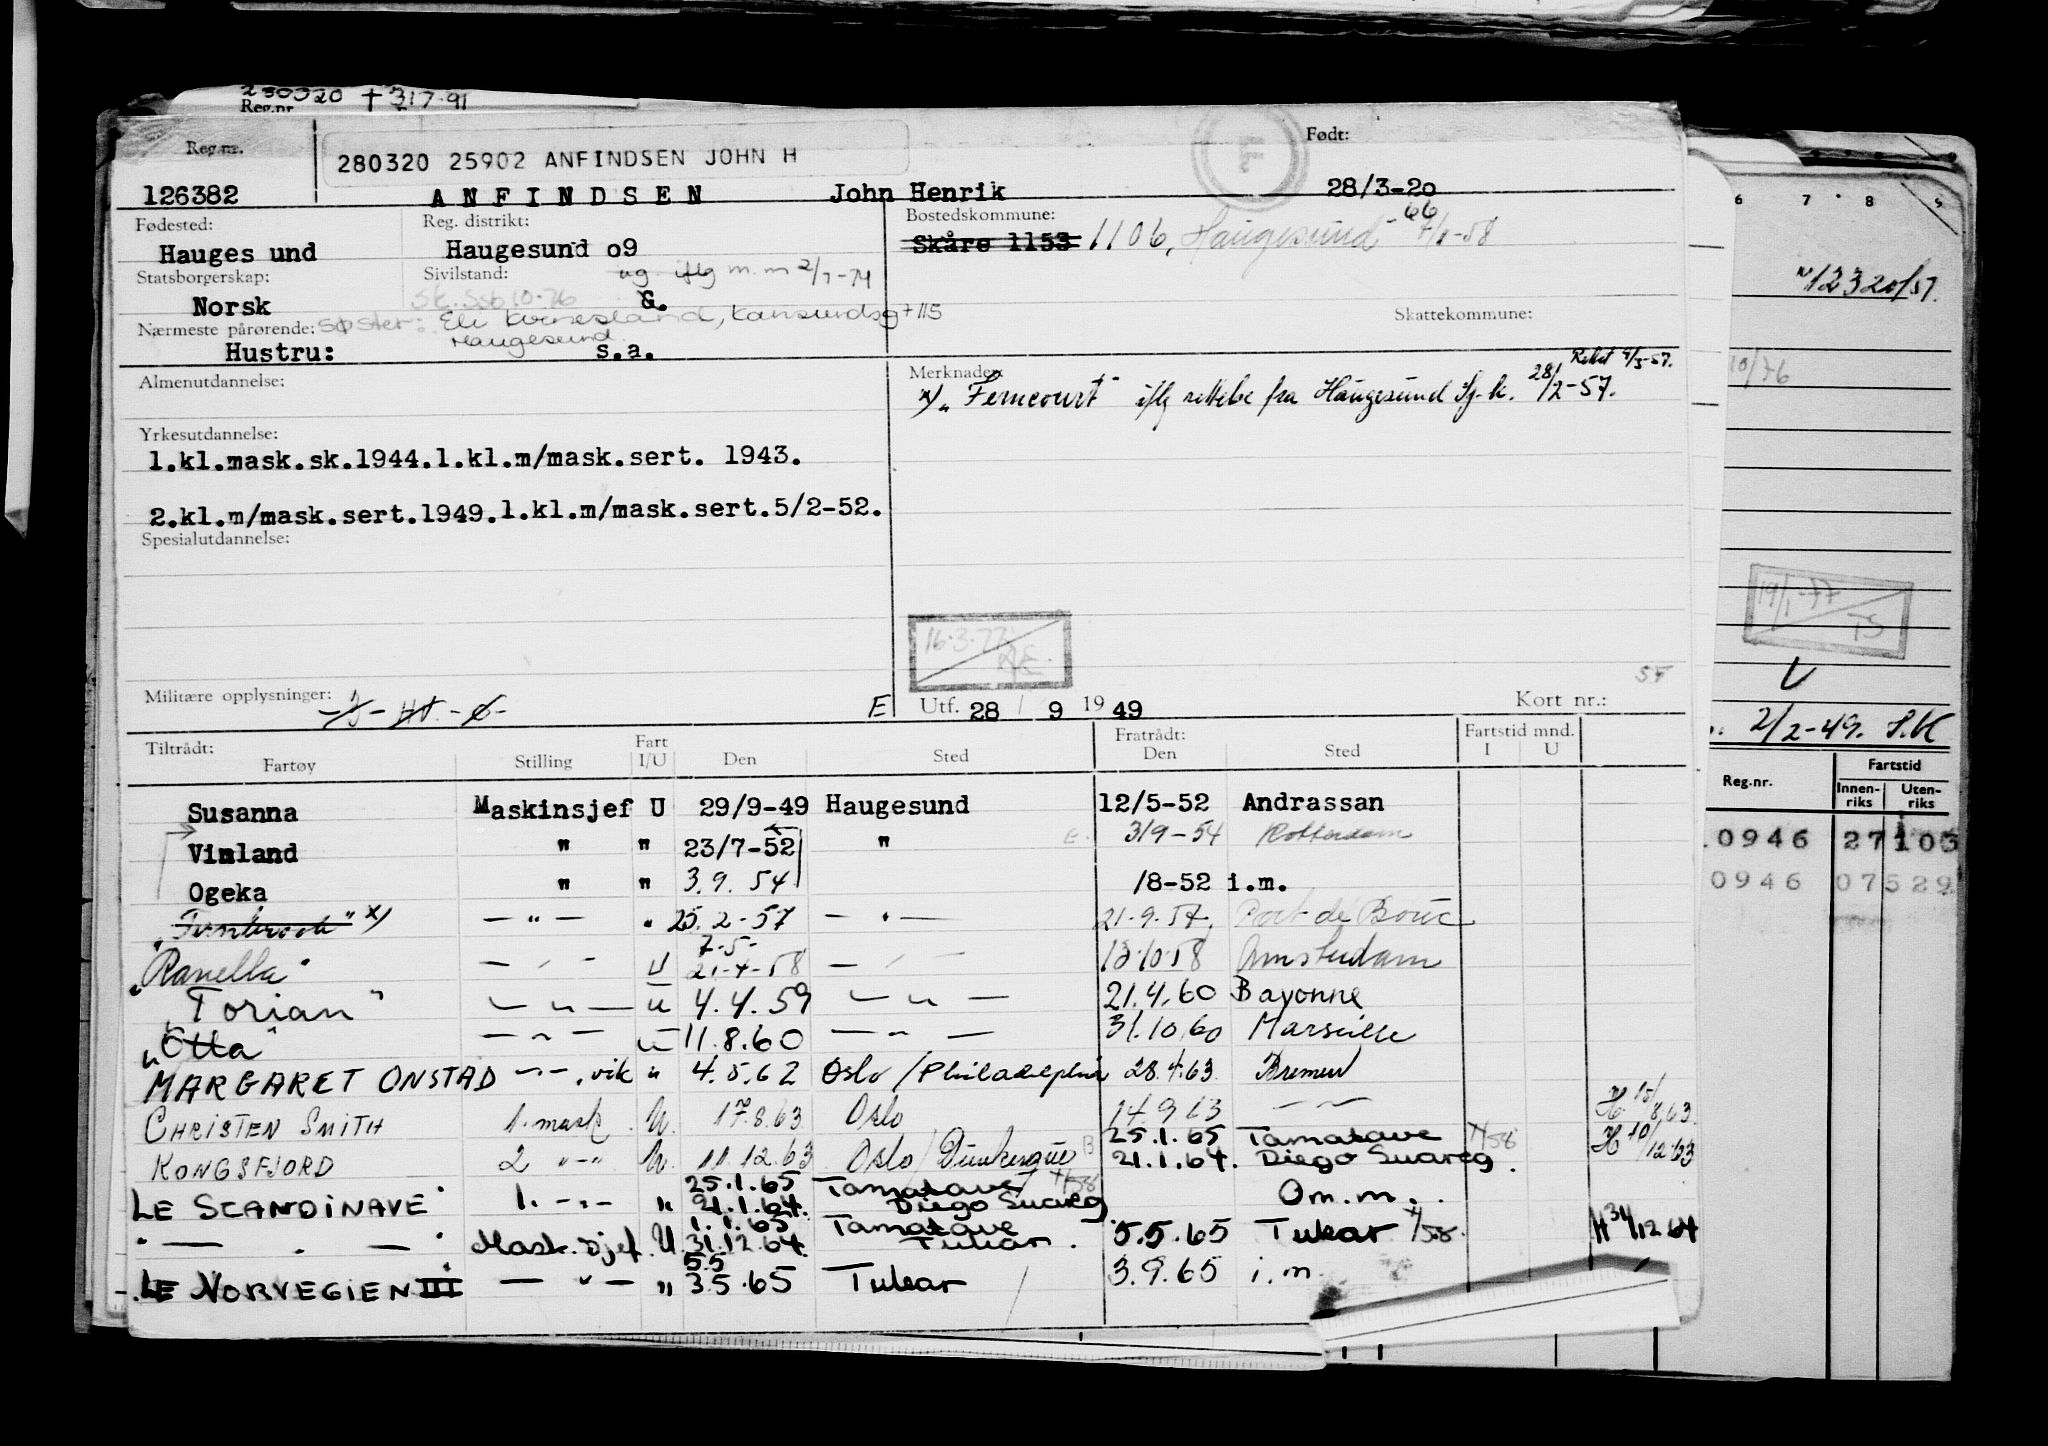 230320 † 317.91
Reg.nr.
Reg.nr. Født:
280320 25902 ANFINDSEN JOHN H
126382 ANFINDSEN John Henrik 28/3-20
Fødested: Reg. distrikt: Bostedskommune:
Hauges und Haugesund o9 Skåre 1153 1106, Haugesund -58
Statsborgerskap: Sivilstand: ug. iflg m.m 2/7-74
Norsk Sk. Ssb 10-76 G.
Nærmeste pårørende: Søster: Eli Kvinesland, +115 Skattekommune:
Haugesund
Hustru: s.a.
Almenutdannelse: Merknader: Rettet
x) "Ferncourt" iflg rettelse fra Haugesund Sj.k. 28/2-57.
Yrkesutdannelse:
1.kl.mask.sk.1944.1.kl.m/mask.sert. 1943.
2.kl.m/mask.sert.1949.1.kl.m/mask.sert.5/2-52.
Spesialutdannelse:
16.3.77
Militære opplysninger: E Utf. 28 / 9 1949 Kort nr.:
Tiltrådt: Fart Fratrådt: Fartstid mnd.
Fartøy Stilling I/U Den Sted Den Sted I U
Susanna Maskinsjef U 29/9-49 Haugesund 12/5-52 Andrassan
Vinland " " 23/7-52 " 3/9-54 Rotterdam
Ogeka " " 3.9.54 /8-52 i.m.
x) — " — " 25.2-57 — " — 21.9.57. Port de Bouc
7-5-
"Ranella" — " — U 21-4-58 — " — 13.10.58 Amsterdam
"Torian" — " — u 4.4.59 — " — 21.4.60 Bayonne
"Otta" — " — u 11.8.60 — " — 31.10.60 Marseille
MARGARET ONSTAD — " — , vik " 4.5.62 Oslo / Philadelphia 28.4.63 Bremen
CHRISTEN SMITH 1. mask U. 17.8.63 Oslo 14.9.63 — " — H 15/8.63
25.1.65 Tamatave 7/58
KONGSFJORD 2 — " — U. 11.12.63 Oslo / Dunkerque 21.1.64. Diego Suareg. H 10/12.63
25.1.65 Tamatave
LE SCANDINAVE 1. — " — " 21.1.64. Diego Suareg Om.m.
1.1.65 Tamatave
" — " — " Mask.sjef. U 31.12.64. Tulear. 5.5.65 Tulear 7/58. H 31/12 64
5.5
LE NORVEGIEN III — " — " 3.5.65 Tulear 3.9.65 i.m.
6 7 8 9
12320/57.
10/76
19/1-77
TS
2/2-49. S.K
Reg.nr. Fartstid
Innen-riks Uten-riks
0946 27 103
0946 07529